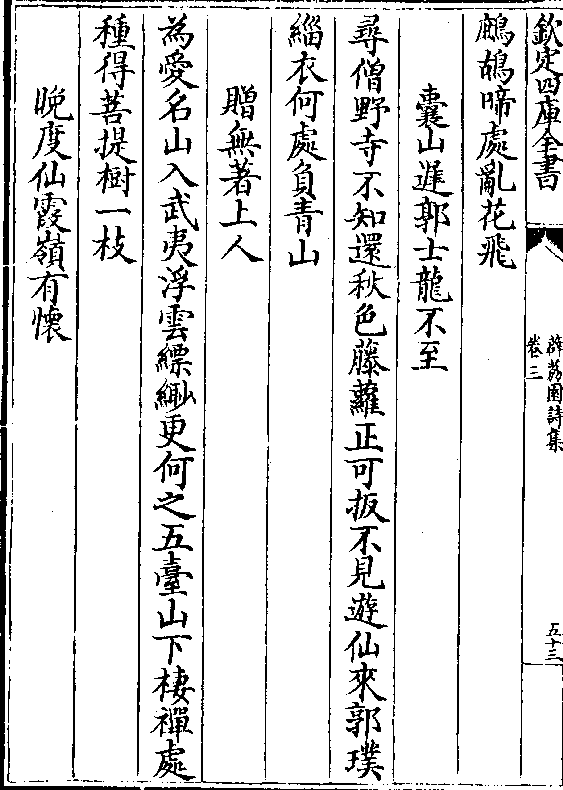 欽定四庫全書
薜荔園詩集
卷三
五十三
鷓鴣啼處亂花飛
囊山遲郭士龍不至
尋僧野寺不知還秋色藤蘿正可扳不見遊仙來郭璞
緇衣何處負青山
贈無著上人
為愛名山入武夷浮雲縹緲更何之五臺山下棲禪處
種得菩提樹一枝
晚度仙霞嶺有懷